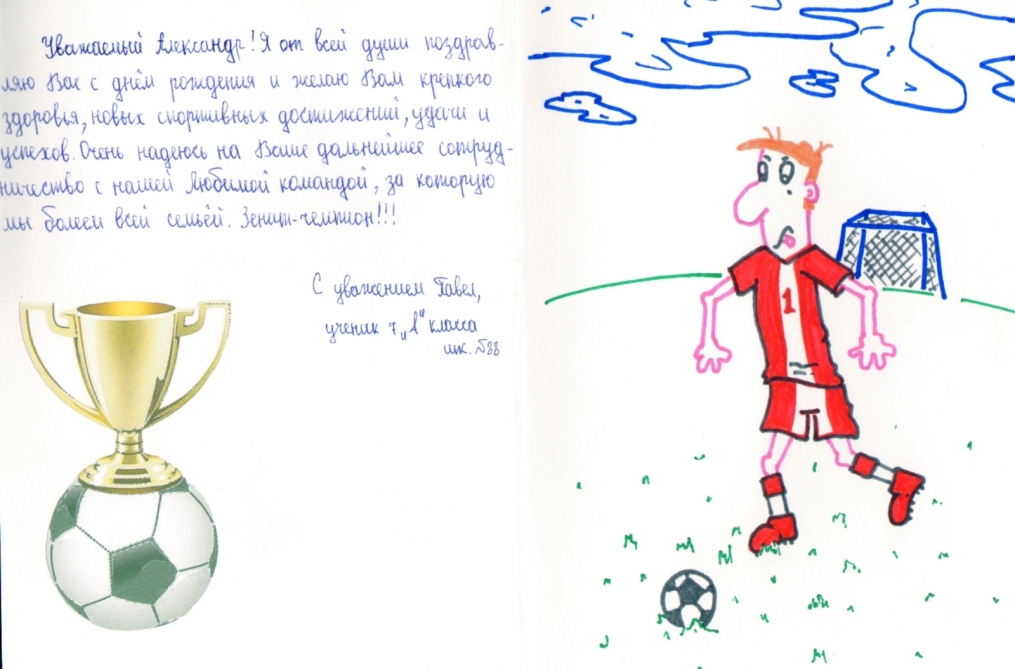 Уважаемый Александр! Я от всей души поздрав-
ляю Вас с днём рождения и желаю Вам крепкого
здоровья, новых спортивных достижений, удачи и
успехов. Очень надеюсь на Ваше дальнейшее сотруд-
ничество с нашей любимой командой, за которую
мы болеем всей семьёй. Зенит-чемпион!!!
С уважением Павел,
ученик 7 „А" класса
шк. №88
1